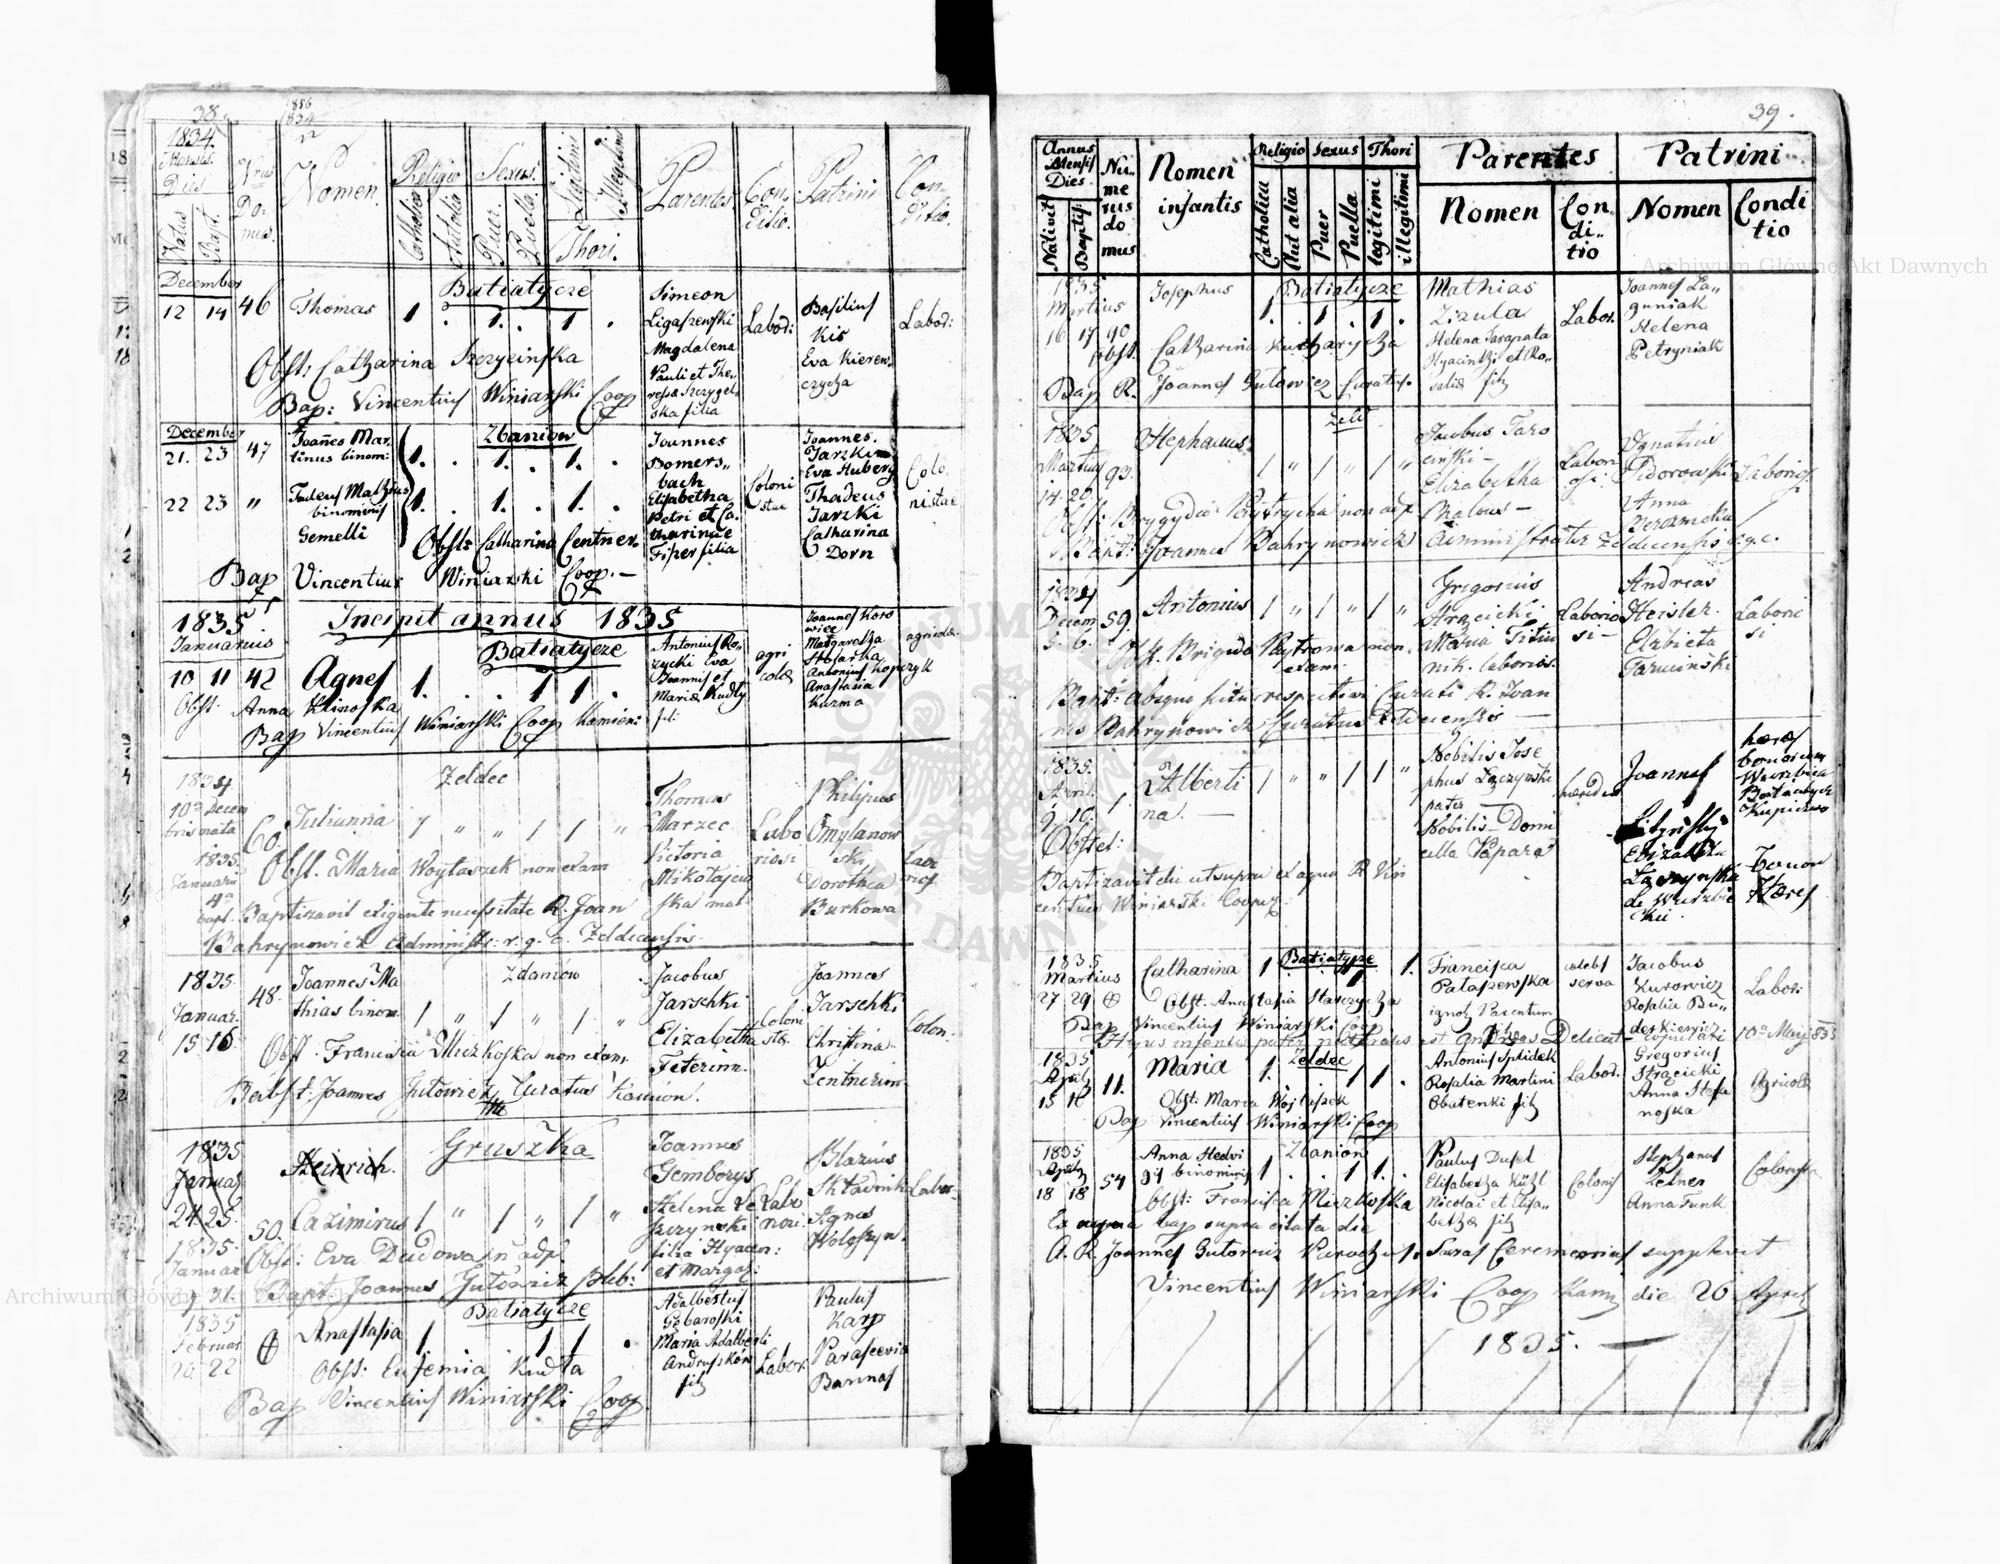 38.
1834.
Mensis
Dies
Natus
Bapt.
Nrus
Do:
mus.
Nomen
Religio
Catholica
Aut alia
Sexus.
Puer.
Puella.
Legitimi
Illegitimi
Thori.
Parentes
Con:
ditio.
Patrini
Con:
ditio.
December
12 14 46 Thomas 1 . 1 . 1 .
Batiatycze
Simeon
Ligaszewski
Magdalena
Pauli et The:
resæ Szczygel
ska filia
Labor:
Basilius
Kis
Eva Kieren
czycha
Labor:
Obst: Catharina Szczycinska
Bap: Vincentius Winiarski Coop
December
21. 23 47 Joannes Mar.
tinus binom: 1. . 1. . 1. .
Zbaniow
22 23 " Tadeus Mathæus
binominis 1. . 1. . 1. .
Gemelli
Joannes
Bomers„
bach
Elisabetha
Petri et Ca.
tharinæ
Fiser filia
Coloni
stae
Joannes.
Jarzki
Eva Huberg
Thadeus
Jarzki
Catharina
Dorn
Colo.
nistae
Obst: Catharina Centner.
Bap Vincentius Winiarski Coop. —
1835
Incipit annus 1835
Januarius
10 11 42 Agnes 1. . . 1 1 .
Batiatycze
Antonius Ro„
zycki Eva
Joannis et
Mariæ Kudły
fil:
agri
colæ
Joannes Koro
wiec
Małgoredza
Stolarka
Antonius Koperzyk
Anastasia
Kuzma
agricolæ.
Obst. Anna Klinoska
Bap Vincentius Winiarski Coop Kamien:
1834
10a Decem
bris nata
1835.
Januarii
4a
bapt.
60. Julianna 1 " " 1 1 "
Zeldec
Thomas
Marzec
Victoria
Mikołajew
ska mat
Labo
riosi
Philipus
Omylanow
ski
Dorothea
Burkowa
Labo
rios
Obst. Maria Woytaszek non exam
Baptizavit exigente necessitate R. Joan
Bahrynowicz Administr: r. g. c. Zeldecensis.
1835
Januar.
15 16
48. Joannes Ma
thias binom. 1 " 1 " 1 "
Zdaniow
Jacobus
Jarschki
Elizabetha
Feterinn.
Coloni
stæ.
Joannes
Jarschki
Christina
Zentnerinn
Colon.
Obst. Francisca Mieszkoska non exam.
Babst: Joannes Gutowicz Curatus Kamion.
1835
Januar
24 25.
1835.
Januar
Heinrich.
Gruszka
50. Casimirus 1 " 1 " 1 "
Joannes
Gemborys
Helena Le
szczynski
filia Hyacin:
et Margar:
Labo
riosi
Blasius
Składnik
Agnes
Woloszyn.
Labor.
Obst: Eva Dudowa in adpl
Bapt. Joannes Gutowicz pleb:
1835
Februar
20 22 Anastasia 1 . . 1 1 .
Batiatycze
Adalbertus
Gebaroski
Maria Adalberti
Andruskow
filia
Labor.
Paulus
Karp
Parascevia
Bannas
Obst: Eufemia Kudła
Bap Vincentius Winiarski Coop
39.
Annus
Mensis
Dies
Nativit
Baptis:
Nu„
me
rus
do
mus
Nomen
infantis
Religio
Catholica
Aut alia
Sexus
Puer
Puella
Thori
legitimi
illegitimi
Parentes
Nomen
Con.
di„
tio
Patrini
Nomen
Condi
tio
1835
Martius
16 17 90 Josephus 1. . 1 . 1 .
Batiatycze
Mathias
Zizula
Helena Sarapata
Hyacinthi et Ro„
saliæ filia
Labor.
Joannes La„
guniak
Helena
Petryniak
Obst. Catharina Kucharycha
Bap R. Joannes Gutowicz Curatus.
1835
Martius
14. 20. 93. Stephanus 1 " 1 " 1 "
Zeld
Jacobus Taro
cinski —
Elizabetha
Malous —
Labori
osi.
Ignatius
Fidorowski
Anna
Laboriosi
Obst: Brygyda Pastrycha non adp
Bapt: Joannes Bahrynowicz Administrator Zeldecensis r. g. c.
1834
Decem
5. 6. 59. Antonius 1 " 1 " 1 "
Grigorius
Strzecicki
Maria Titiu
nik. laborios.
Laborio
si —
Andreas
Heisler.
Elzbieta
Tarnwinski
Laborio
si
Obst. Brigida Pastrowa non
exam.
Bapt: absque situ respectivi Curati R. Joan
nes Bahrynowicz Curatus Zeldecensis —
1835.
April.
9. 16. 1 Alberti
na. — 1 " " 1 1 "
Nobilis Jose
phus Łączynski
pater
Nobilis Domi
cella Papara
hæredes
Joannes
Elizabetha
Łączynska
de Wierzbic
kii
hæres
bonorum
Wierzbica
Bonor
Hæres
Obstet:
Baptizavit die ut supra ex aqua R Vin
centius Winiarski Cooper.
1835
Martius
27 29 Catharina 1 . . 1 . 1.
Batiatycze
Francisca
Pataszewska
ignot Parentum
filia
celebs
serva
Jacobus
Kurowicz
Rosalia Bu„
derkiewicz
Labor:
Obst. Anastasia Starczycha
Bap Vincentius Winiarski Coop
Hujus infantis pater naturalis est Andreas Delicat — copulati 10a Maij 835
1835
April
15 16 11. Maria 1. . . 1 1 .
Zeldec
Antonius Spłidek
Rosalia Martini
Obatenki filia
Labor.
Gregorius
Strzecicki
Anna Stefa
noska
Agricolæ
Obst: Maria Wojtaszek
Bap Vincentius Winiarski Coop
1835
April
18 18 54 Anna Hedvi
gis binominis 1. . . 1 1. .
Zbaniow
Paulus Dusel
Elisabetha Kühl
Nicolai et Elisa„
bethæ filia
Colonis
Stephanus
Zetner
Anna Funk
Colonistæ
Obst: Francisca Mieszkoska
Ex aqua bap supra citata die
A. R. Joannes Gutowicz Parochus. Sacras Ceremonias supplevit
Vincentius Winiarski Coop Kami die 26 April
1835. —
Archiwum Główne Akt Dawnych
Archiwum Główne Akt Dawnych